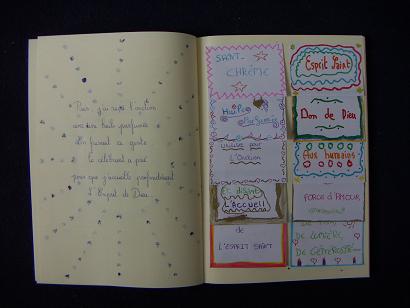 Puis j'ai reçu l'onction
avec une huile parfumée
En faisant ce geste
le célébrant a parlé
pour que j'accueille profondément
L'Esprit de Dieu
SAINT-
CHRÊME
Huile
Parfumée
utilisée pour
L'Onction
ET disant
L'ACCUEIL
de
L'ESPRIT SAINT
Esprit Saint
Don de Dieu
Aux humains
FORCE D'AMOUR
DE LUMIÈRE
DE GÉNÉROSITÉ